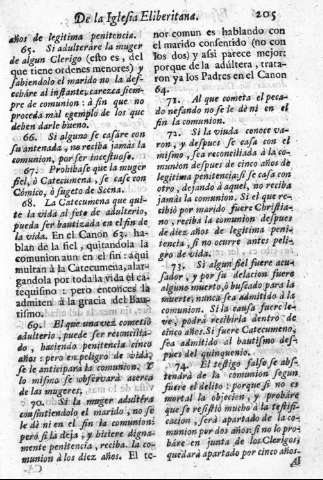 De la Iglesia Eliberitana. 205
años de legitima penitencia.
65. Si adulterare la muger
de algun Clerigo (esto es, del
que tiene ordenes menores) y
sabiendolo el marido no la des-
echàre al instante, carezca siem-
pre de comunion: à fin que no
proceda mal egemplo de los que
deben darle bueno.
66. Si alguno se casàre con
su antenada, no reciba jamàs la
comunion, por ser incestuoso.
67. Prohibase que la muger
fiel, ò Catecumena, se case con
Còmico, ò sugeto de Scena.
68. La Catecumena que qui-
te la vida al feto de adulterio,
pueda ser bautizada en el fin de
la vida. En el Canon 63. ha-
blan dè la fiel, quitandola la
comunion aun en el fin: aqui
multan à la Catecumena, alar-
gandola por toda la vida el ca-
tequismo: pero entonces la
admiten à la gracia del Bau-
tismo.
69. El que una vez cometiò
adulterio, puede ser reconcilia-
do, haciendo penitencia cinco
años: pero en peligro de vida,
se le anticiparà la comunion. Y
lo mismo se observarà acerca
de las mugeres.
70. Si la muger adultéra
consintiendolo el marido, no se
le dè ni en el fin la comunion:
pero si la deja, y hiciere digna-
mente penitencia, reciba la co-
munion à los diez años. El te-
nor comun es hablando con
el marido consentido (no con
los dos) y asi parece mejor:
porque de la adultera, trata-
ron ya los Padres en el Canon
64.
71. Al que cometa el peca-
do nefando no se le dè ni en el
fin la comunion.
72. Si la viuda conoce va-
ron, y despues se casa con el
mismo, sea reconciliada à la co-
munion despues de cinco años de
legitima penitencia: si se casa con
otro, dejando à aquel, no reciba
jamàs la comunion. Si el que re-
cibiò por marido fuere Christia-
no, reciba la comunion despues
de diez años de legitima peni-
tencia, si no ocurre antes peli-
gro de vida.
73. Si algun fiel fuere acu-
sador, y por su delacion fuere
alguno muerto, ò buscado para la
muerte, nunca sea admitido à la
comunion. Si la causa fuere le-
ve, podrà recibirla dentro de
cinco años. Si fuere Catecumeno,
sea admitido al bautismo des-
pues del quinquenio.
74. El testigo falso se abs-
tendrà de la comunion segun
fuere el delito: porque si no es
mortal la objecion, y probàre
que se resistiò mucho à la testifi-
cacion, serà apartado de la co-
munion por dos años: si no lo pro-
báre en junta de los Clerigos,
quedarà apartado por cinco años.
Al